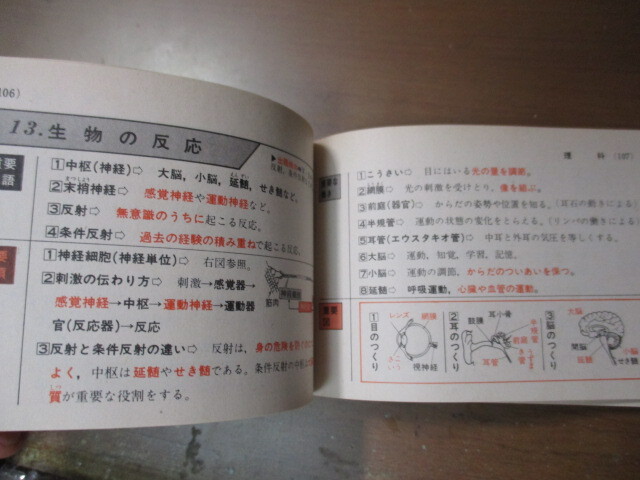 106)
13.生物の反応
①中枢(神経)⇨ 大脳,小脳,延髄,せき髄など。
②末梢神経⇨ 感覚神経や運動神経など。
③反射⇨ 無意識のうちに起こる反応。
④条件反射⇨ 過去の経験の積み重ねで起こる反応。
①神経細胞(神経単位)⇨ 右図参照。
②刺激の伝わり方⇨ 刺激→感覚器→
感覚神経→中枢→運動神経→運動器
官(反応器)→反応
筋肉
③反射と条件反射の違い⇨ 反射は,身の危険を
よく,中枢は延髄やせき髄である。条件反射は
質が重要な役割をする。
理 科 (107)
①こうさい⇨ 目にはいる光の量を調節。
②網膜⇨ 光の刺激を受けとり,像を結ぶ。
③前庭(器官)⇨ からだの姿勢や位置を知る。(耳石の働きによる)
④半規管⇨ 運動の状態の変化をとらえる。(リンパの働きによる)
⑤耳管(エウスタキオ管)⇨ 中耳と外耳の気圧を等しくする。
⑥大脳⇨ 運動,知覚,学習,記憶。
⑦小脳⇨ 運動の調節,からだのつりあいを保つ。
⑧延髄⇨ 呼吸運動,心臓や血管の運動。
①目のつくり
レンズ
網膜
こうさい
視神経
②耳のつくり
鼓膜
耳小骨
半規管
前庭
耳管
③脳のつくり
大脳
間脳
延髄
小脳
せき髄